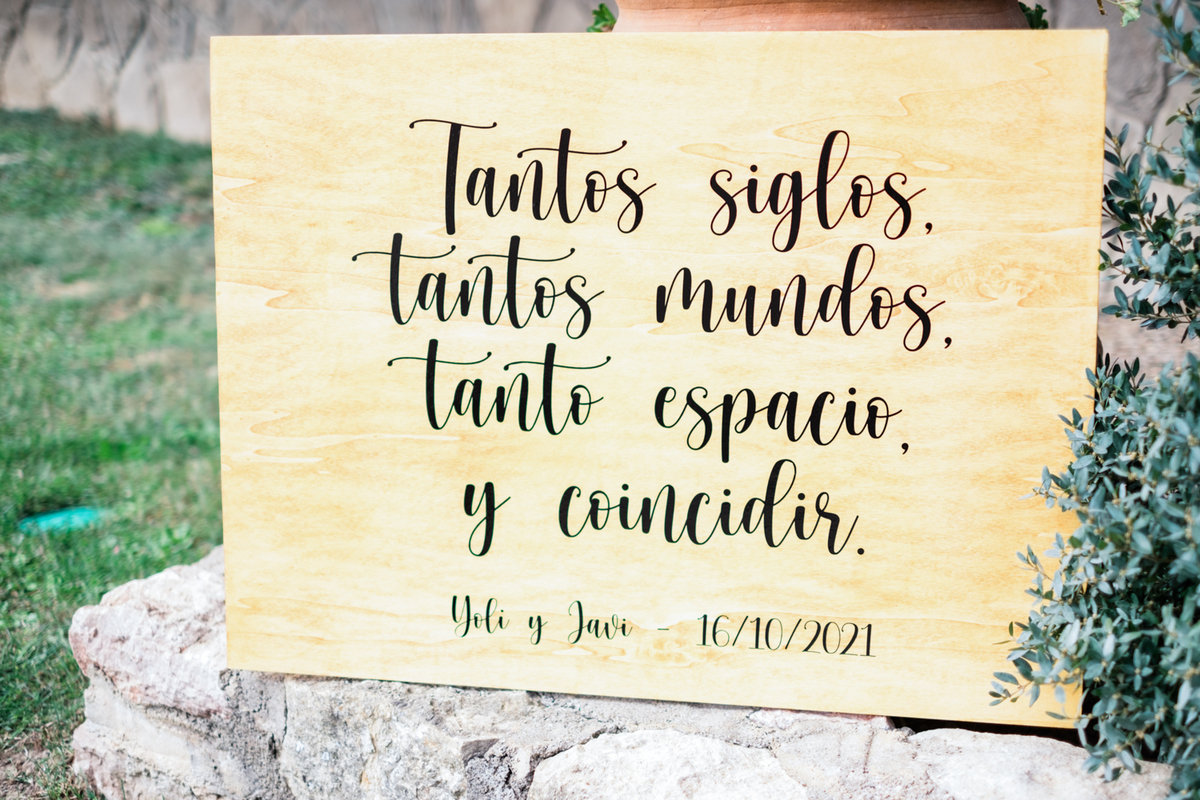 Tantos siglos,
tantos mundos,
tanto espacio,
y coincidir.
Yoli y Javi - 16/10/2021